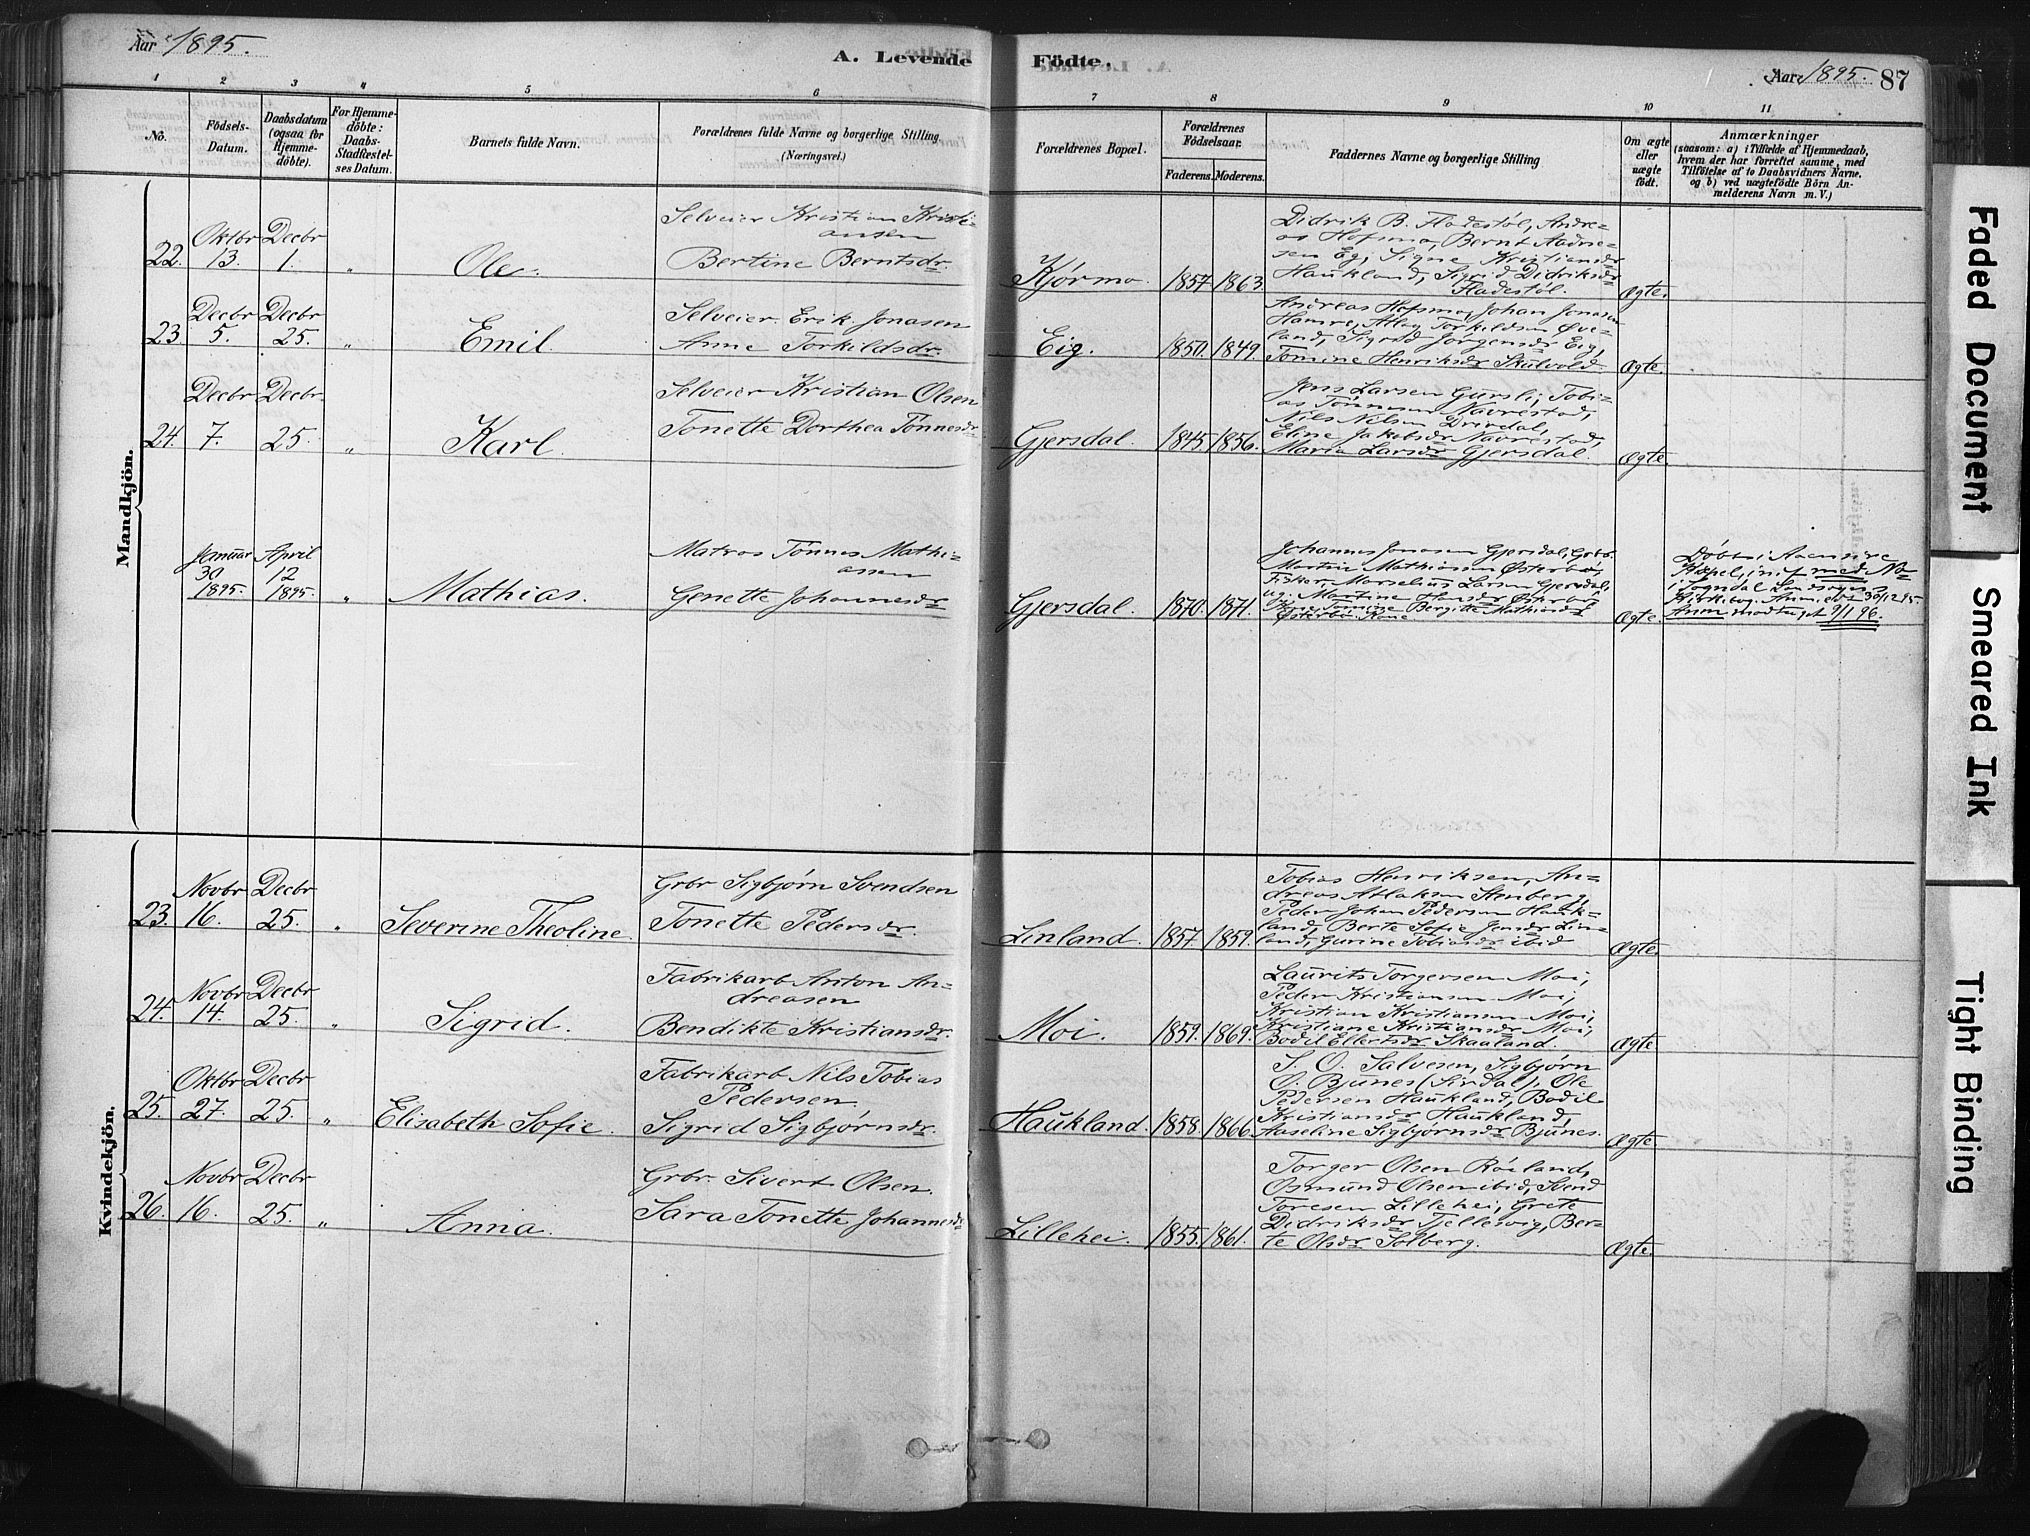 Aar 1895.
A. Levende Födte.
Aar 1895. 87
1 2 3 4 5 6 7 8 9 10 11
No.
Födsels-
Datum.
Daabsdatum
(ogsaa for
Hjemme-
döbte).
For Hjemme-
döbte:
Daabs-
Stadfæstel-
ses Datum.
Barnets fulde Navn.
Forældrenes fulde Navne og borgerlige Stilling
(Næringsvei.)
Forældrenes Bopæl.
Forældrenes
Födselsaar.
Faderens. Moderens.
Faddernes Navne og borgerlige Stilling
Om ægte
eller
uægte
födt.
Anmærkninger
(saasom: a) i Tilfælde af Hjemmedaab,
hvem der har forrettet samme, med
Tilföielse af to Daabsvidners Navne.
og b) ved uægtefödte Börn An-
melderens Navn m. V.)
Mandkjön.
22.
Oktbr
13.
Decbr
1.
"
Ole.
Selveier Kristian Kristi-
ansen
Bertine Berntsdr.
Kjørmo.
1857. 1863.
Didrik B. Fladestøl, Andre-
as Hofsmo, Bernt Aadne-
sen Eg, Signe Kristiansdr
Haukland, Sigrid Didriksdr
Fladestøl.
Ægte.
23.
Decbr
5.
Decbr
25.
"
Emil.
Selveier Erik Jonasen
Anne Torkildsdr.
Eig.
1850. 1849.
Andreas Hofsmo, Johan Jonasen
Hamre, Atlag Torkildsen Øve-
land, Sigrid Jørgensdr Eig,
Tomine Henriksdr Skulvold
Ægte.
24.
Decbr
7.
Decbr.
25.
"
Karl.
Selveier Kristian Olsen
Tonette Dorthea Tönnesdr
Gjersdal.
1845. 1856.
Jens Larsen Gursli, Tobi-
as Tönnesen Navrestad,
Nils Nilsen Drivdal,
Eline Jakobsdr Navrestad,
Maria Larsdr Gjersdal.
Ægte.
Januar
30
1895.
April
12
1895.
"
Mathias.
Matros Tönnes Mathi-
assen
Genette Johannesdr
Gjersdal.
1870. 1871.
Johannes Jonasen Gjersdal, Grbr.
Martin Mathiasen Østerbø,
Fisker, Marselius Larsen Gjersdal,
ug. Martine Hansdr Østerbø
Tomine Bergitte Mathiasdr
Østerbø Kone.
Ægte.
Døbt i Aaensire
Kapel, inf. med No
i Sogndal Landsogns
Kirkebog. Anm. 30/12 95.
Anm modtaget 9/1 96.
Kvindekjön.
23.
Novbr
16.
Decbr
25.
"
Severine Theoline.
Grbr Sigbjørn Svendsen
Tonette Pedersdr.
Linland.
1857. 1859.
Tobias Henriksen, An-
dreas Atlaksen Stenberg,
Peder Johan Pedersen Hauk-
land, Berte Sofie Jensdr Lin-
land, Gurine Tobiasdr ibid
Ægte.
24.
Novbr
14.
Decbr
25.
"
Sigrid.
Fabrikarb Anton An-
dreasen
Bendikte Kristiansdr.
Moi.
1859. 1869.
Laurits Torgersen Moi,
Peder Kristiansen Moi,
Kristian Kristiansen Moi,
Kristiane Kristiansdr Moi,
Bodil Ellertsdr Skaaland.
Ægte.
25.
Oktbr
27.
Decbr
25.
"
Elisabeth Sofie.
Fabrikarb Nils Tobias
Pedersen.
Sigrid Sigbjørnsdr.
Haukland.
1858. 1866.
S. O. Salvesen, Sigbjørn
S. Bjunes (Sirdal), Ole
Pedersen Haukland, Bodil
Kristiansdr Haukland,
Aaseline Sigbjørnsdr Bjunes.
Ægte.
26.
Novbr
16.
Decbr
25.
"
Anna.
Grbr. Sivert Olsen.
Sara Tonette Johannesdr
Lillehei.
1855. 1861.
Torger Olsen Röiland,
Osmund Olsen ibid, Svend
Toresen Lillehei, Grete
Didriksdr Tjellesvig, Ber-
te Olsdr Solberg.
Ægte.
Faded Document
Smeared Ink
Tight Binding